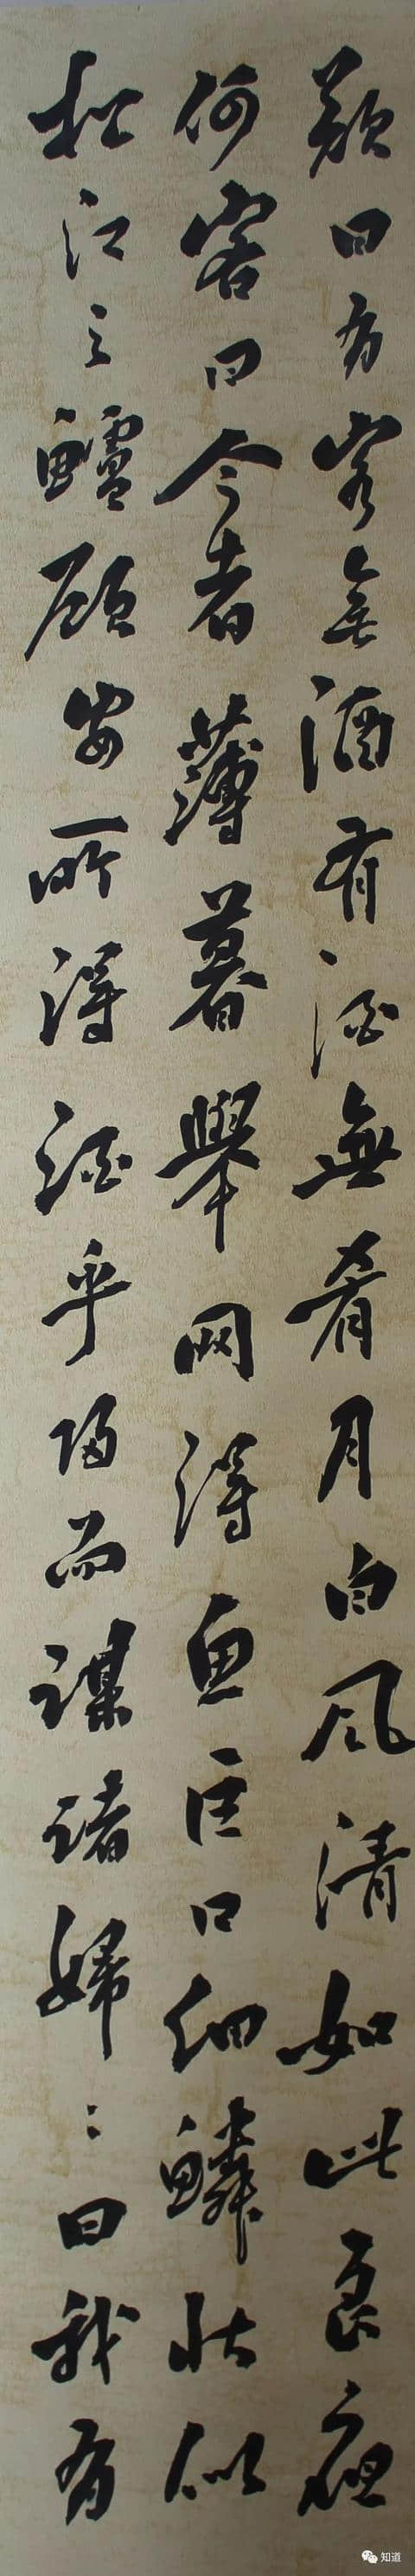 歎曰有客無酒有酒無肴月白風清如此良夜
何客曰今者薄暮舉网得魚巨口細鱗状似
松江之鱸顧安所得酒乎歸而謀諸婦〻曰我有
知道